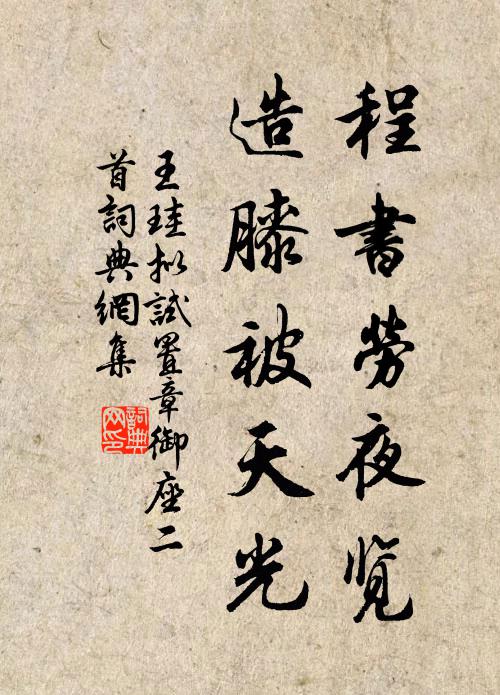 程書勞夜览
造膝被天光
王珪拟試置章御座二
首詞典網集
詞典
网印